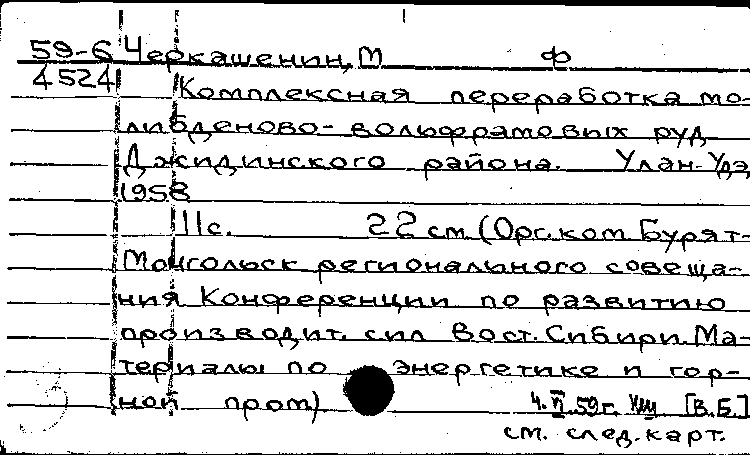 59-6 Черкашенин, М ф
4524
Комплексная переработка мо-
либденово-вольфрамовых руд
Джидинского района. Улан-Удэ,
1958
11с. 22 см (Орг.ком. Бурят-
Монгольск регионального совеща-
ния Конференции по развитию
производит. сил Вост. Сибири. Ма-
териалы по энергетике и гор-
ной пром)
59г. [В.Б.]
см. след. карт.